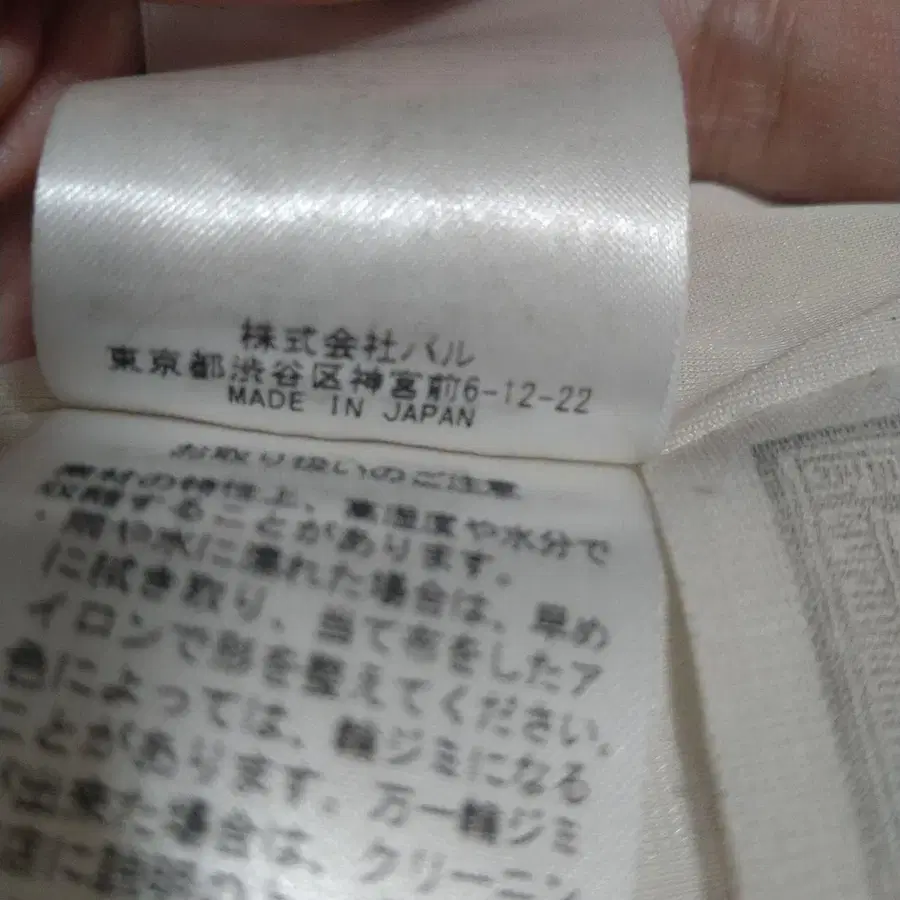 株式会社パル
東京都渋谷区神宮前6-12-22
MADE IN JAPAN
お取り扱いのご注意
素材の特性上、高湿度や水分で
収縮することがあります。
・雨や水に濡れた場合は、早め
に拭き取り、当て布をしたア
イロンで形を整えてください。
色によっては、輪ジミになる
ことがあります。万一輪ジミ
出来た場合は、クリーニン